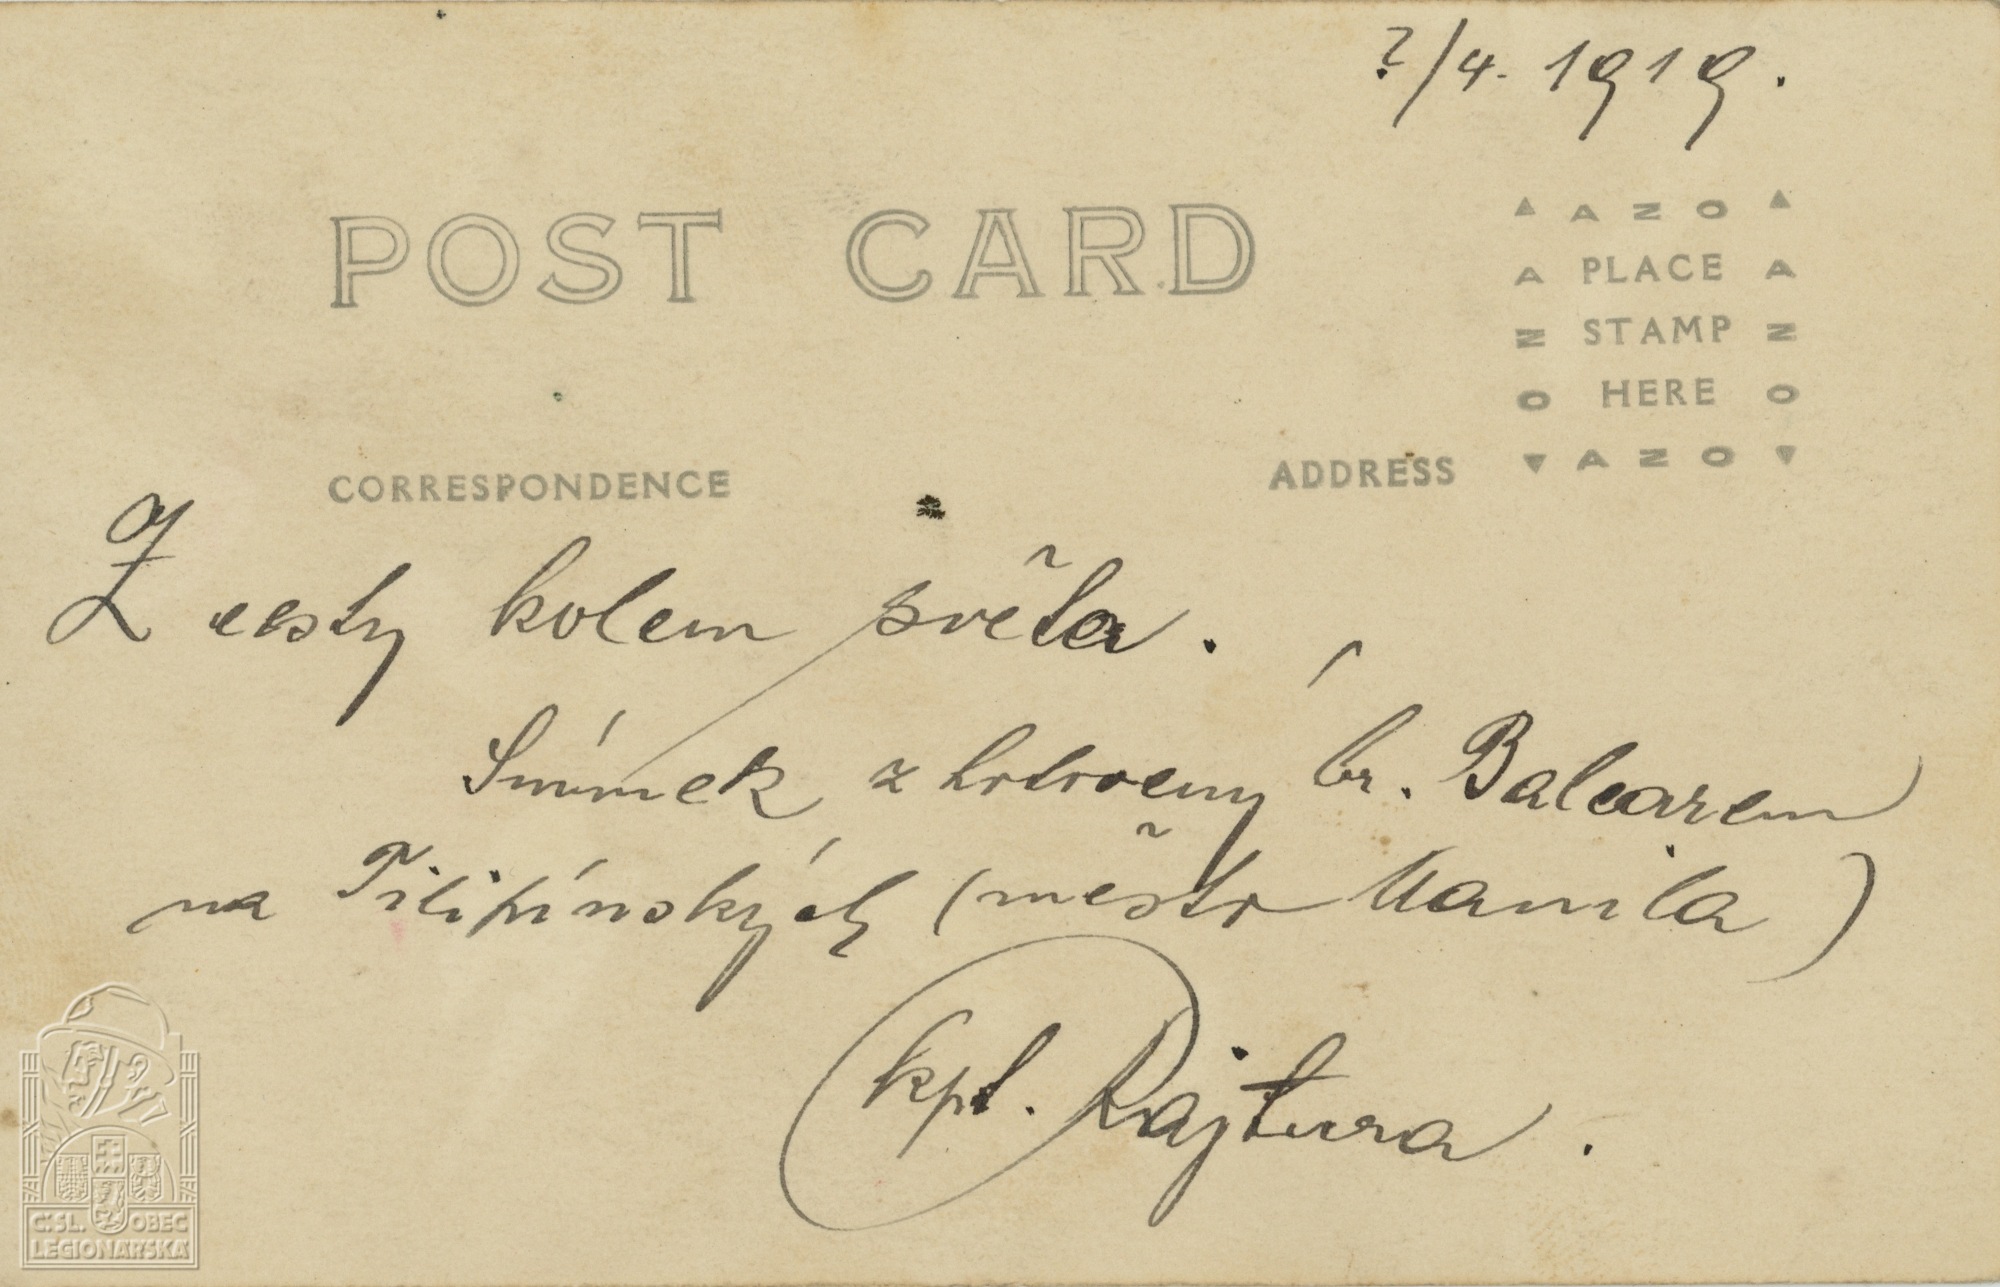 ?/4. 1919.
POST CARD
AZO
PLACE
STAMP
HERE
AZO
AZO
AZO
CORRESPONDENCE
ADDRESS
Z cesty kolem světa.
Snímek zhotovený br. Balcarem
na Filipínských (město Manila)
kpl. Rajtura.
Č.SL. OBEC
LEGIONÁŘSKÁ